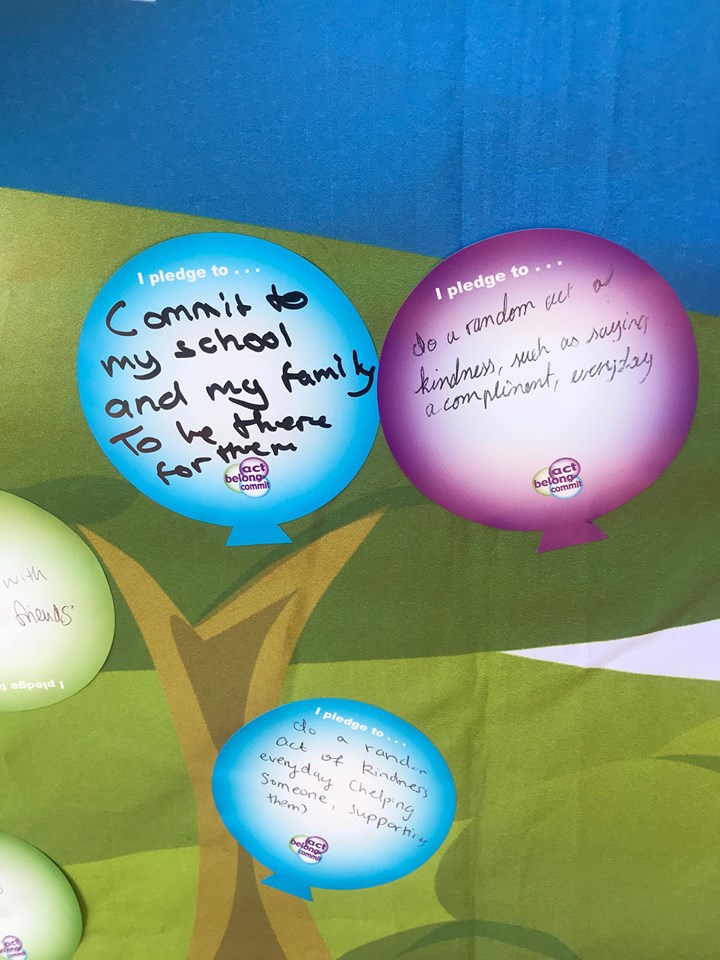 I pledge to . . .
Commit to
my school
and my family
To be there
for them
act
belong
commit
I pledge to . . .
do a random act
kindness, such as saying
a compliment, everyday
act
belong
commit
with
friends
I pledge
I pledge to . . .
do a random
act of kindness
everyday (helping
someone, supporting
them)
act
belong
commit